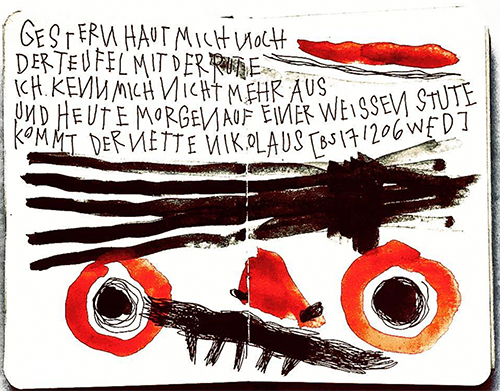 GESTERN HAUT MICH NOCH
DER TEUFEL MIT DER RUTE
ICH KENN MICH NICHT MEHR AUS
UND HEUTE MORGEN AUF EINER WEISSEN STUTE
KOMMT DER NETTE NIKOLAUS [BS171206WED]